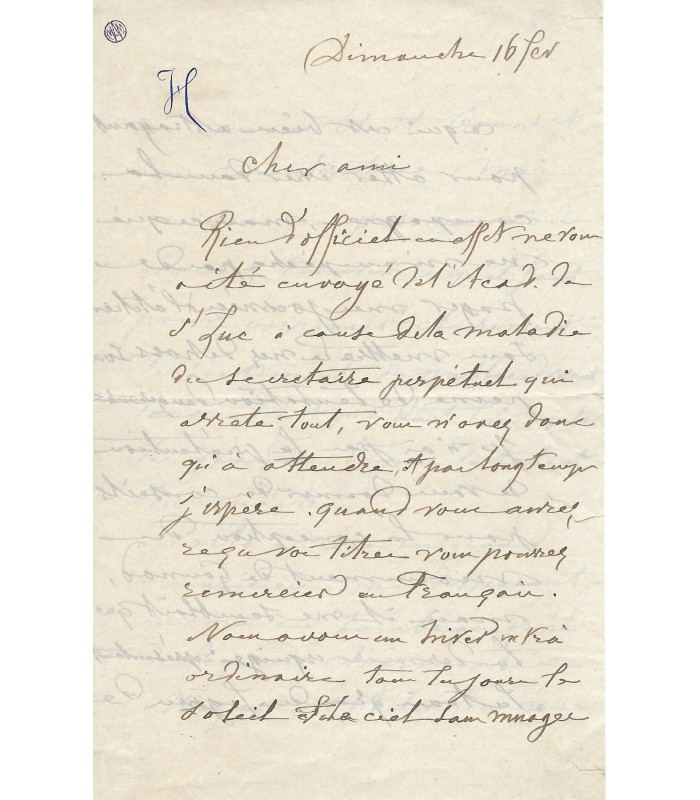 Dimanche 16 fev
H
cher ami
Rien d'officiel en effet ne vous
a été envoyé de l'Acad. de
St Luc à cause de la maladie
du secretaire perpétuel qui
arrete tout, vous n'avez donc
qu'à attendre, & pas longtemps
j'espère. quand vous aurez
reçu vos titres vous pourrez
remercier en Français.
Nous avons un hiver extra
ordinaire tous les jours le
soleil & le ciel sans nuages